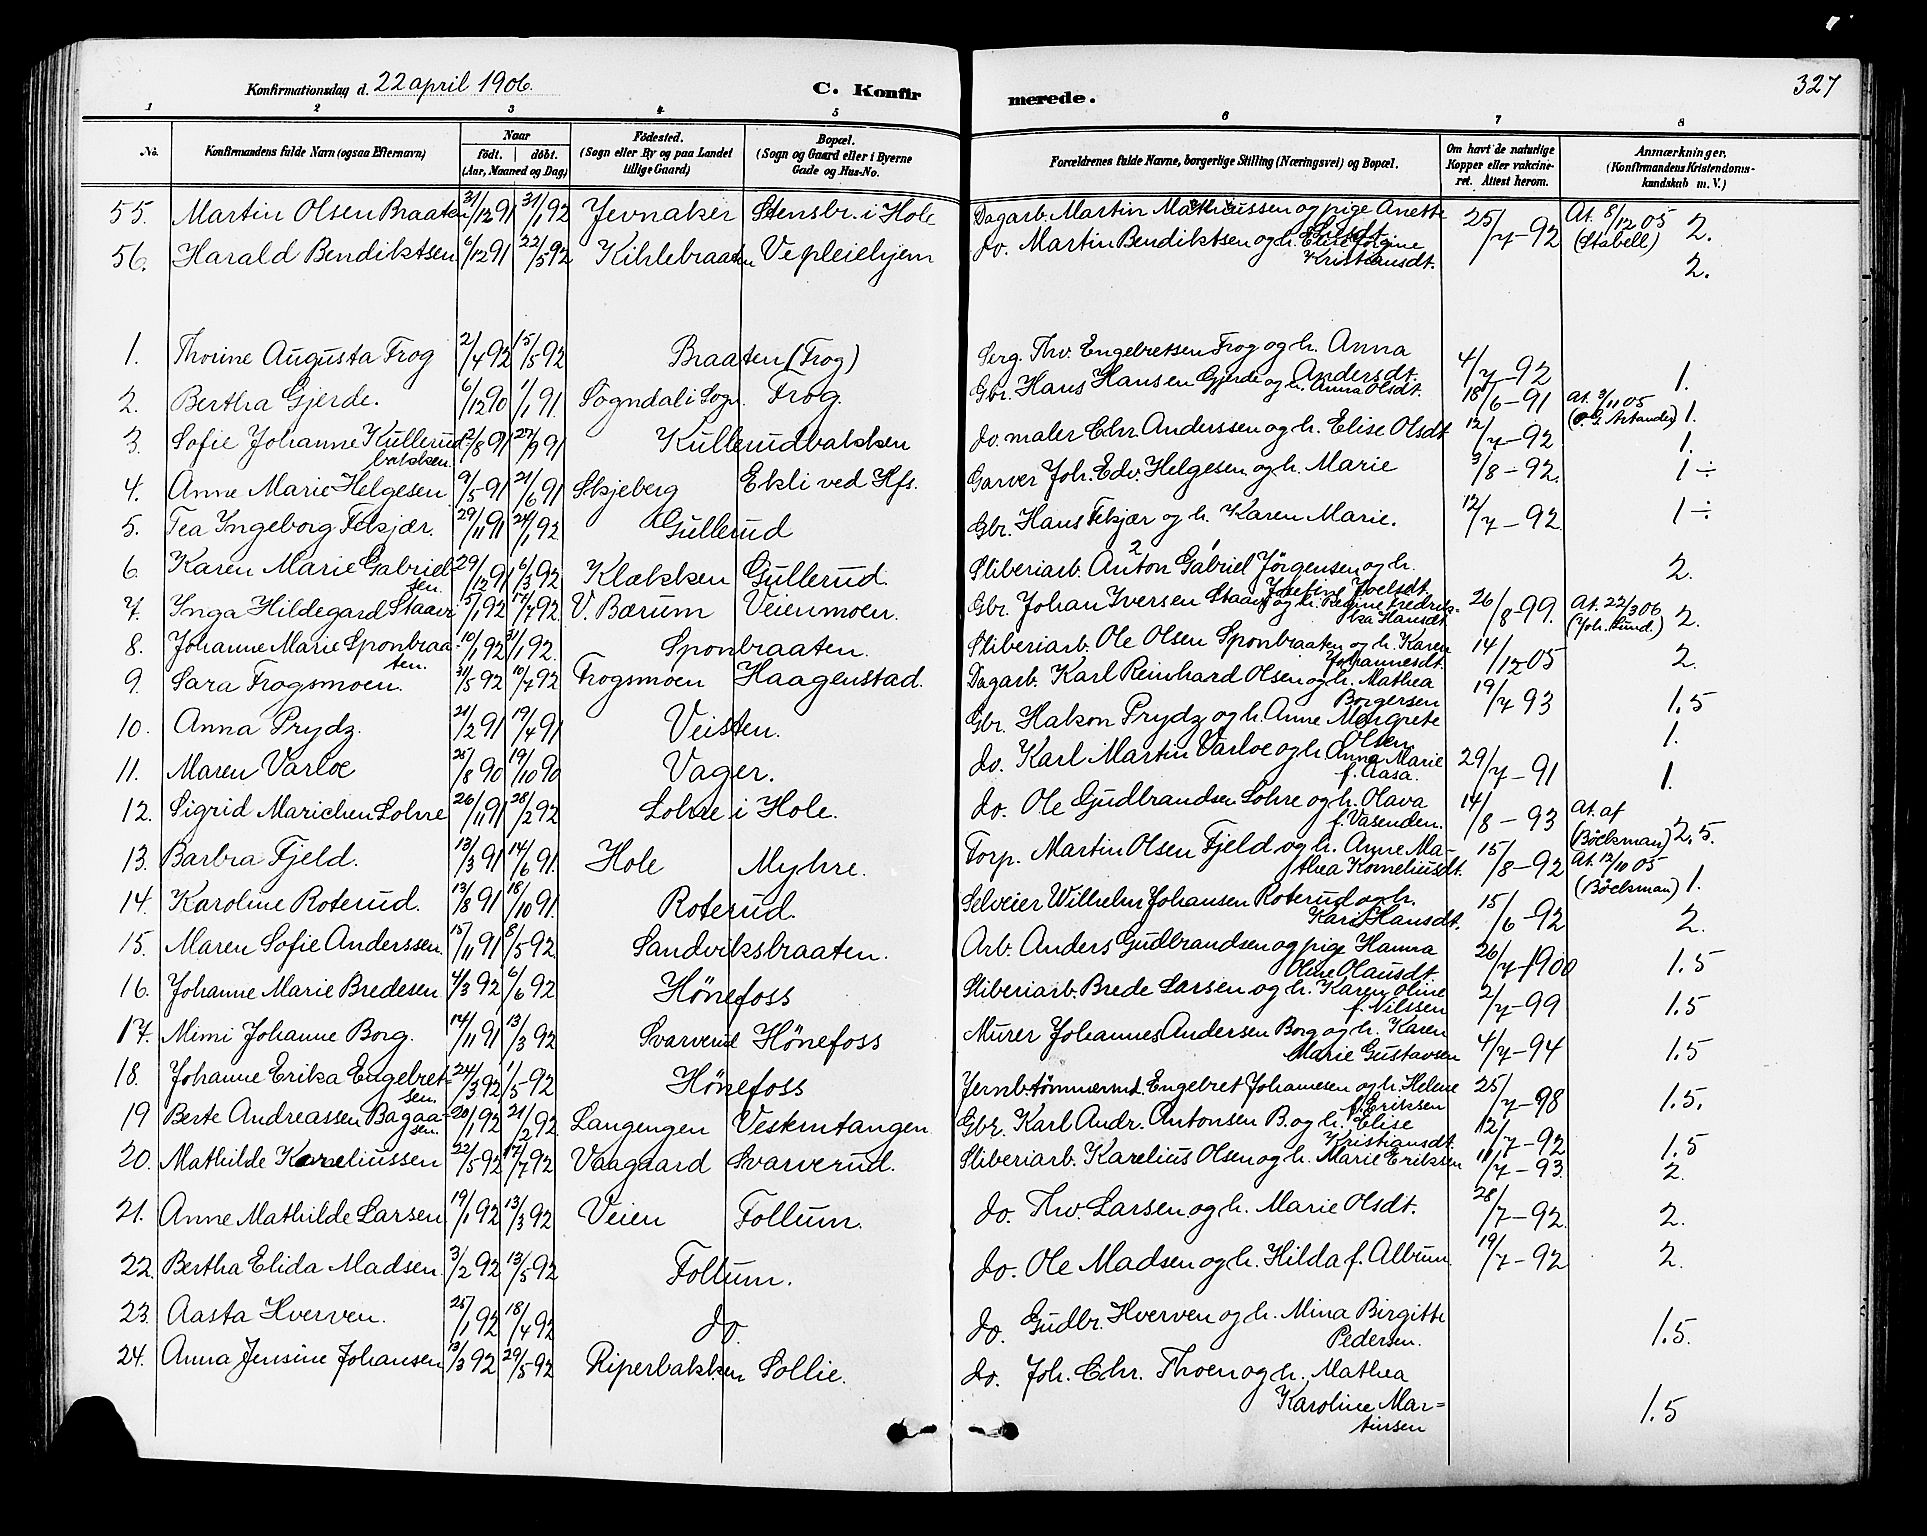 327
Konfirmationsdag d. 22 april 1906.
C. Konfirmerede.
1 2 3 4 5 6 7 8
No. Konfirmandens fulde Navn (ogsaa Efternavn) Naar födt. döbt. (Aar, Maaned og Dag) Födested. (Sogn eller By og paa Landet tillige Gaard) Bopæl. (Sogn og Gaard eller i Byerne Gade og Hus-No. Forældrenes fulde Navne, borgerlige Stilling (Næringsvei) og Bopæl. Om havt de naturlige Kopper eller vakcineret. Attest herom. Anmærkninger. (Konfirmandens Kristendomskundskab m. V.)
55. Martin Olsen Braaten 31/12 91 31/1 92 Jevnaker Stensbr. i Hole Dagarb. Martin Mathiussen og pige Anette Olsdt. 25/7-92 At. 8/12 05 (Stabell) 2.
56. Harald Bendiktsen 6/12 91 22/5 92 Kihlebraaten Ve pleiehjem do. Martin Bendiktsen og h. Elise Jorgine Kristiansdt. 2.
1. Thorine Augusta Frog 2/4 92 15/5 92 Braaten (Frog) Serg. Thv. Engebretsen Frog og h. Anna Andersdt. 4/7-92 1.
2. Bertha Gjerde. 6/12 90 1/1 91. Sogndal i Sogn. Frog. Gbr. Hans Hansen Gjerde og h. Anna Olsdt. 18/6-91 At. 3/11 05 1.
3. Sofie Johanne Kullerudbakken. 2/8 91 27/9 91 Kullerudbakken do. maler Chr. Anderssen og h. Elise Olsdt 12/7-92 1.
4. Anne Marie Helgesen 9/5 91 21/6 91 Skjeberg Ekli ved Hfs. Garver Joh. Edv. Helgesen og h. Marie 3/8-92. 1 ÷
5. Tea Ingeborg Fekjær. 29/11 91 24/1 92 Gullerud Gbr. Hans Fekjær og h. Karen Marie. 12/7-92 1 ÷
6. Karen Marie Gabrielsen. 29/12 91 6/3 92 Klækken Gullerud. Sliberiarb. Anton Gabriel Jörgensen og h. Josefine Joelsdt. 2.
7. Ynga Hildegard Staavi 5/1 92 17/4 92 V. Bærum Veienmoen. Gbr. Johan Iversen Staavi og h. Regine Fredrikka Hansdt 26/8-99. At. 22/3 06 (Joh. Lund.) 2.
8. Johanne Marie Sponbraaten. 10/1 92 31/1 92. Sponbraaten. Sliberiarb. Ole Olsen Sponbraaten og h. Karen Johannesdt. 14/12 05 2.
9. Sara Frogsmoen. 31/5 92 10/7 92 Frogsmoen Haagenstad. Dagarb. Karl Reinhard Olsen og h. Mathea Borgersen 19/7 93 1.5
10. Anna Prydz. 21/2 91 19/4 91 Veisten. Gbr. Hakon Prydz og h. Anne Margrete Olsen 1.
11. Maren Varloe 25/8 90 19/10 90 Vager. do. Karl Martin Varloe og h. Anna Marie f. Aasa. 29/7-91 1.
12. Sigrid Marichen Lohre 26/11 91 28/2 92 Lohre i Hole. do. Ole Gudbrandsen Lohre og h. Olava f. Vasenden. 14/8-93 At. af (Böckman) 2.5.
13. Barbra Fjeld. 13/3 91 14/6 91. Hole Myhre. Torp. Martin Olsen Fjeld og h. Anne Mathea Korneliusdt. 15/8-92 At. 12/10 05 (Böckman) 1.
14. Karoline Roterud. 13/8 91 18/10 91. Roterud. Selveier Wilhelm Johansen Roterud og h. Kari Hansdt. 15/6-92 2.
15. Maren Sofie Anderssen. 15/11 91 8/5 92. Sandviksbraaten. Arb. Anders Gudbrandsen og pige Hanna Oline Olausdt. 26/7-1900 1.5
16. Johanne Marie Bredesen 4/3 92 6/6 92 Hönefoss Sliberiarb. Brede Larsen og h. Karen Oline f. Nilssen 2/7-99 1.5
17. Mimi Johanne Borg. 14/11 91 13/3 92 Svarverud Hönefoss Murer Johannes Andersen Borg og h. Karen Marie Gustavsen 4/7-94 1.5
18. Johanne Erika Engebretsen. 24/3 92 1/5-92 Hönefoss Jernb. tömmermd. Engebret Johannesen og h. Helene f. Eriksen 25/7-98 1.5.
19 Berte Andreassen Bagaasen. 20/1 92 21/2 92. Langengen Vesterntangen Gbr. Karl Andr. Antonsen B. og h. Elise Kristiansdt. 12/7-92 1.5
20. Mathilde Kareliussen 22/5 92 17/7 92 Vaagaard Svarverud. Sliberiarb. Karelius Olsen og h. Marie Eriksen 11/7-93 2.
21. Anne Mathilde Larsen 19/1 92 13/3 92 Veien Follum. do. Thv. Larsen og h. Marie Olsdt. 28/7-92. 2.
22. Bertha Elida Madsen 3/2 92 13/5 92 Follum. do. Ole Madsen og h. Hilda f. Albrun 19/7-92 2.
23. Aasta Hverven. 25/1 92 18/4 92 do. do. Gudbr. Hverven og h. Mina Birgitte Pedersen. 1.5.
24. Anna Jensine Johansen 13/3 92 29/5 92 Riperbakken Sollie. do. Joh. Chr. Thoen og h. Mathea Karoline Martinsen 1.5